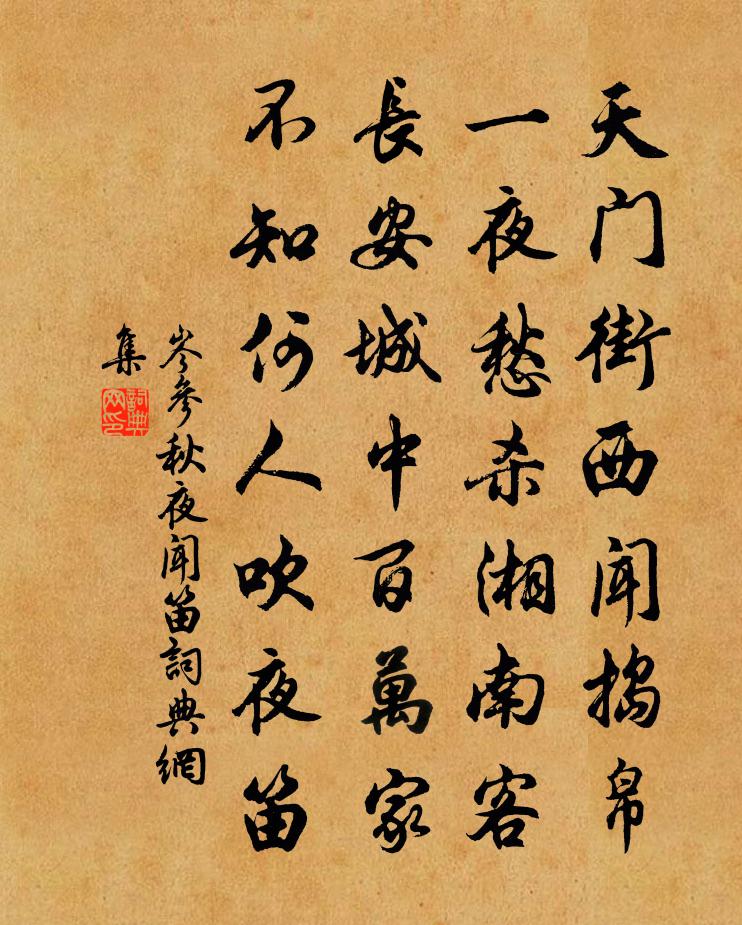 天门街西闻搗帛
一夜愁杀湘南客
長安城中百萬家
不知何人吹夜笛
岑參秋夜闻笛詞典網
集
詞典
网印